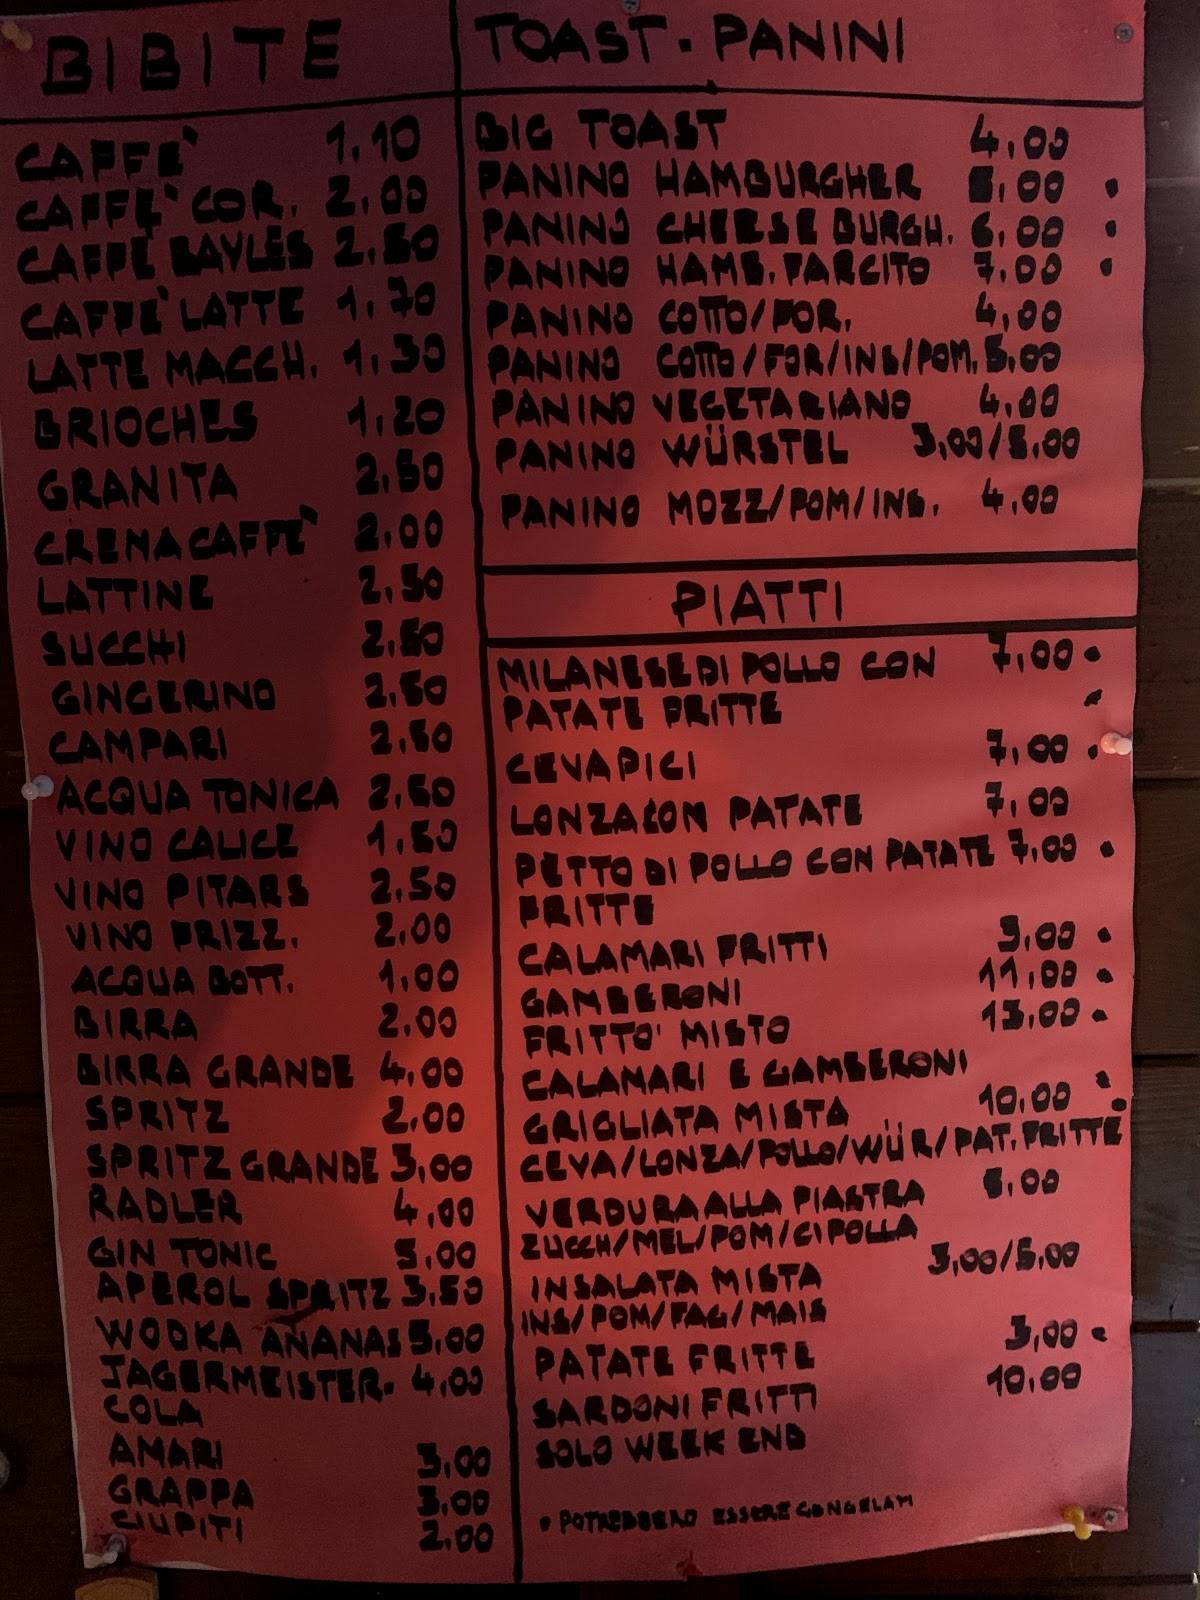 BIBITE
CAFFE' 1,10
CAFFE' COR. 2,00
CAFFE BAYLES 2,50
CAFFE' LATTE 1,70
LATTE MACCH. 1,30
BRIOCHES 1,20
GRANITA 2,50
CREMA CAFFE' 2,00
LATTINE 2,50
SUCCHI 2,50
GINGERINO 2,50
CAMPARI 2,50
ACQUA TONICA 2,50
VINO CALICE 1,50
VINO PITARS 2,50
VINO FRIZZ. 2,00
ACQUA BOTT. 1,00
BIRRA 2,00
BIRRA GRANDE 4,00
SPRITZ 2,00
SPRITZ GRANDE 3,00
RADLER 4,00
GIN TONIC 5,00
APEROL SPRITZ 3,50
WODKA ANANAS 5,00
JAGERMEISTER. 4,00
COLA
AMARI 3,00
GRAPPA 3,00
CIUPITI 2,00
TOAST. PANINI
BIG TOAST 4,00
PANINO HAMBURGHER ,00 •
PANINO CHEESE BURGH. 6,00 •
PANINO HAMB. FARCITO 7,00 •
PANINO COTTO/FOR. 4,00
PANINO COTTO/FOR/INS/POM. 5,00
PANINO VEGETARIANO 4,00
PANINO WÜRSTEL 3,00/5,00
PANINO MOZZ/POM/INS. 4,00
PIATTI
MILANESE DI POLLO CON 7,00 •
PATATE FRITTE •
CEVAPICI 7,00 •
LONZA CON PATATE 7,00
PETTO DI POLLO CON PATATE 7,00 •
FRITTE
CALAMARI FRITTI 9,00 •
GAMBERONI 11,00 •
FRITTO' MISTO 13,00 •
CALAMARI E GAMBERONI •
GRIGLIATA MISTA 10,00 •
CEVA/LONZA/POLLO/WÜR/PAT. FRITTE
VERDURA ALLA PIASTRA 5,00
ZUCCH/MEL/POM/CIPOLLA
INSALATA MISTA 3,00/5,00
INS/POM/FAG/MAIS
PATATE FRITTE 3,00 •
SARDONI FRITTI 10,00
SOLO WEEK END
• POTREBBERO ESSERE CONGELATI